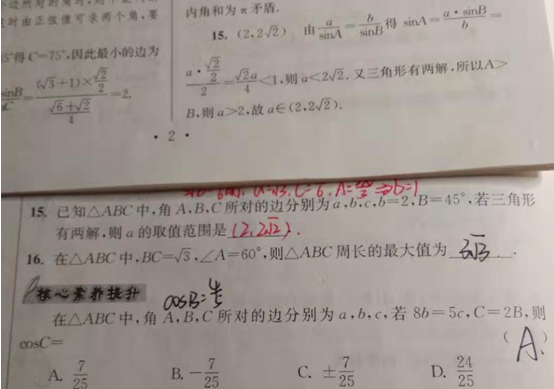 时由正弦值可求两个角,要
5°得C=75°,因此最小的边为
sinB/C = (√3+1)×√2/2 / (√6+√2)/4 = 2.
内角和为π矛盾.
15. (2,2√2) 由 a/sinA = b/sinB 得 sinA = a·sinB/b =
a·√2/2 / 2 = √2a/4 <1,则a<2√2.又三角形有两解,所以A>
B,则a>2,故a∈(2,2√2).
· 2 ·
15. 已知△ABC中,角A,B,C所对的边分别为a,b,c,b=2,B=45°,若三角形
有两解,则a的取值范围是 (2,2√2).
16. 在△ABC中,BC=√3,∠A=60°,则△ABC周长的最大值为 3√3 .
核心素养提升
cosB=4/5
在△ABC中,角A,B,C所对的边分别为a,b,c,若8b=5c,C=2B,则
cosC= ( A. )
A. 7/25 B. -7/25 C. ±7/25 D. 24/25